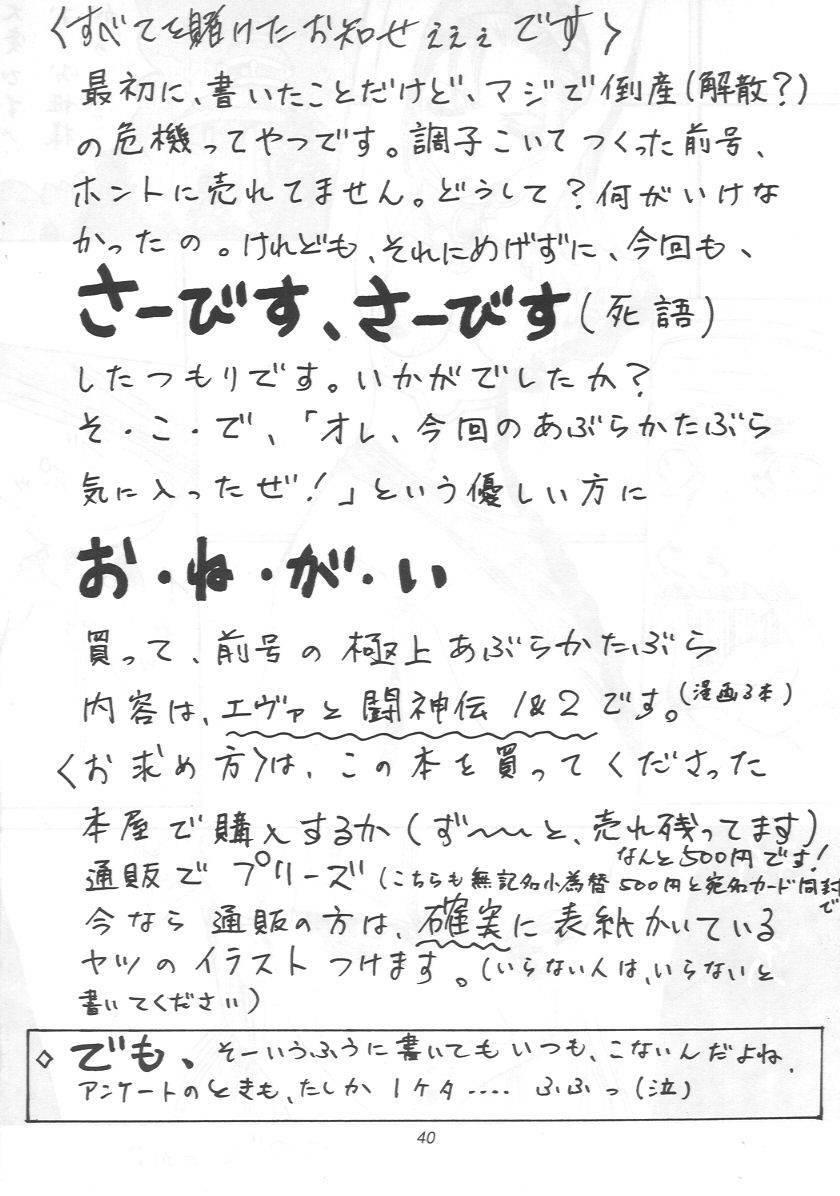 〈すべてを賭けたお知せぇぇぇです〉
最初に、書いたことだけど、マジで倒産(解散?)
の危機ってやつです。調子こいてつくった前号、
ホントに売れてません。どうして?何がいけな
かったの。けれども、それにめげずに、今回も、
さーびす、さーびす(死語)
したつもりです。いかがでしたか?
そ・こ・で、「オレ、今回のあぶらかたぶら
気に入ったぜ!」という優しい方に
お・ね・が・い
買って、前号の極上あぶらかたぶら
内容は、エヴァと闘神伝1&2です。(漫画3本)
〈お求め方〉は、この本を買ってくださった
本屋で購入するか(ず〜〜〜と、売れ残ってます)
なんと500円です!
通販でプリーズ(こちらも無記名小為替500円と宛名カード同封で
今なら通販の方は、確実に表紙かいている
ヤツのイラストつけます。(いらない人は、いらないと
書いてください)
◇でも、そーいうふうに書いてもいつも、こないんだよね、
アンケートのときも、たしか1ケタ‥‥ふふっ(泣)
40